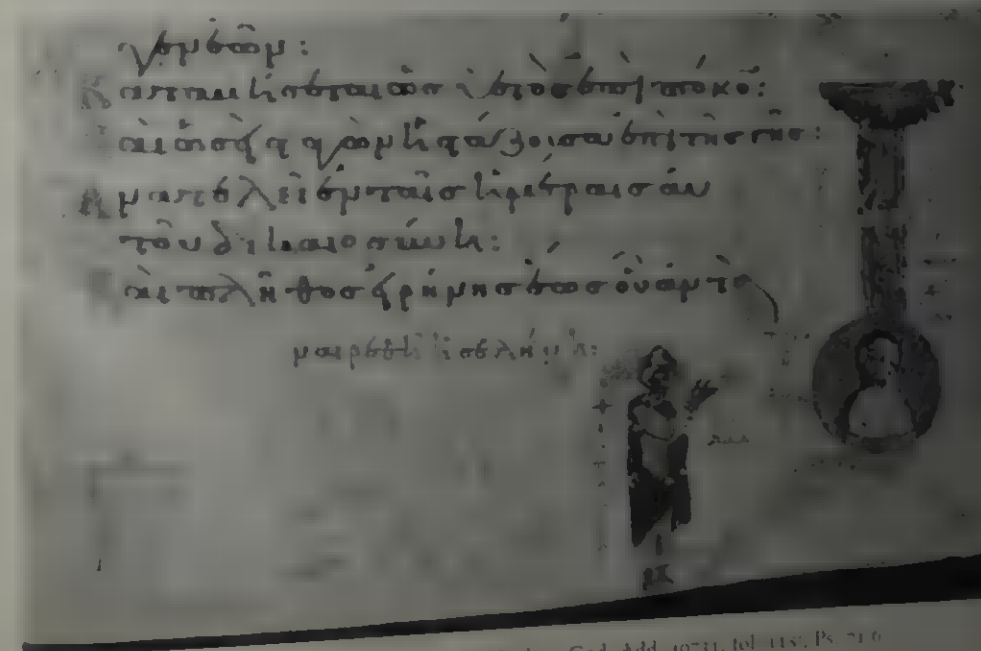 γενεῶν:
Καταβήσεται ὡς ὑετὸς ἐπὶ πόκον:
καὶ ὡσεὶ σταγὼν ἡ στάζουσα ἐπὶ τῆς γῆς:
Ἀνατελεῖ ἐν ταῖς ἡμέραις αὐ
τοῦ δικαιοσύνη:
καὶ πλῆθος εἰρήνης ἕως οὗ ἀντα
ναιρεθῇ ἡ σελήνη:
Cod. Add. 40731, fol. Ps. 71.6